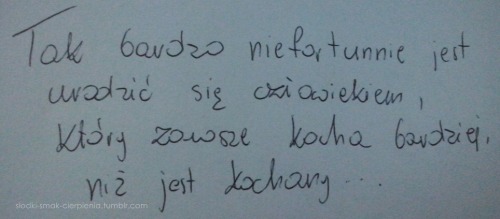 Tak bardzo niefortunnie jest
urodzić się człowiekiem,
który zawsze kocha bardziej,
niż jest kochany...
slodki-smak-cierpienia.tumblr.com